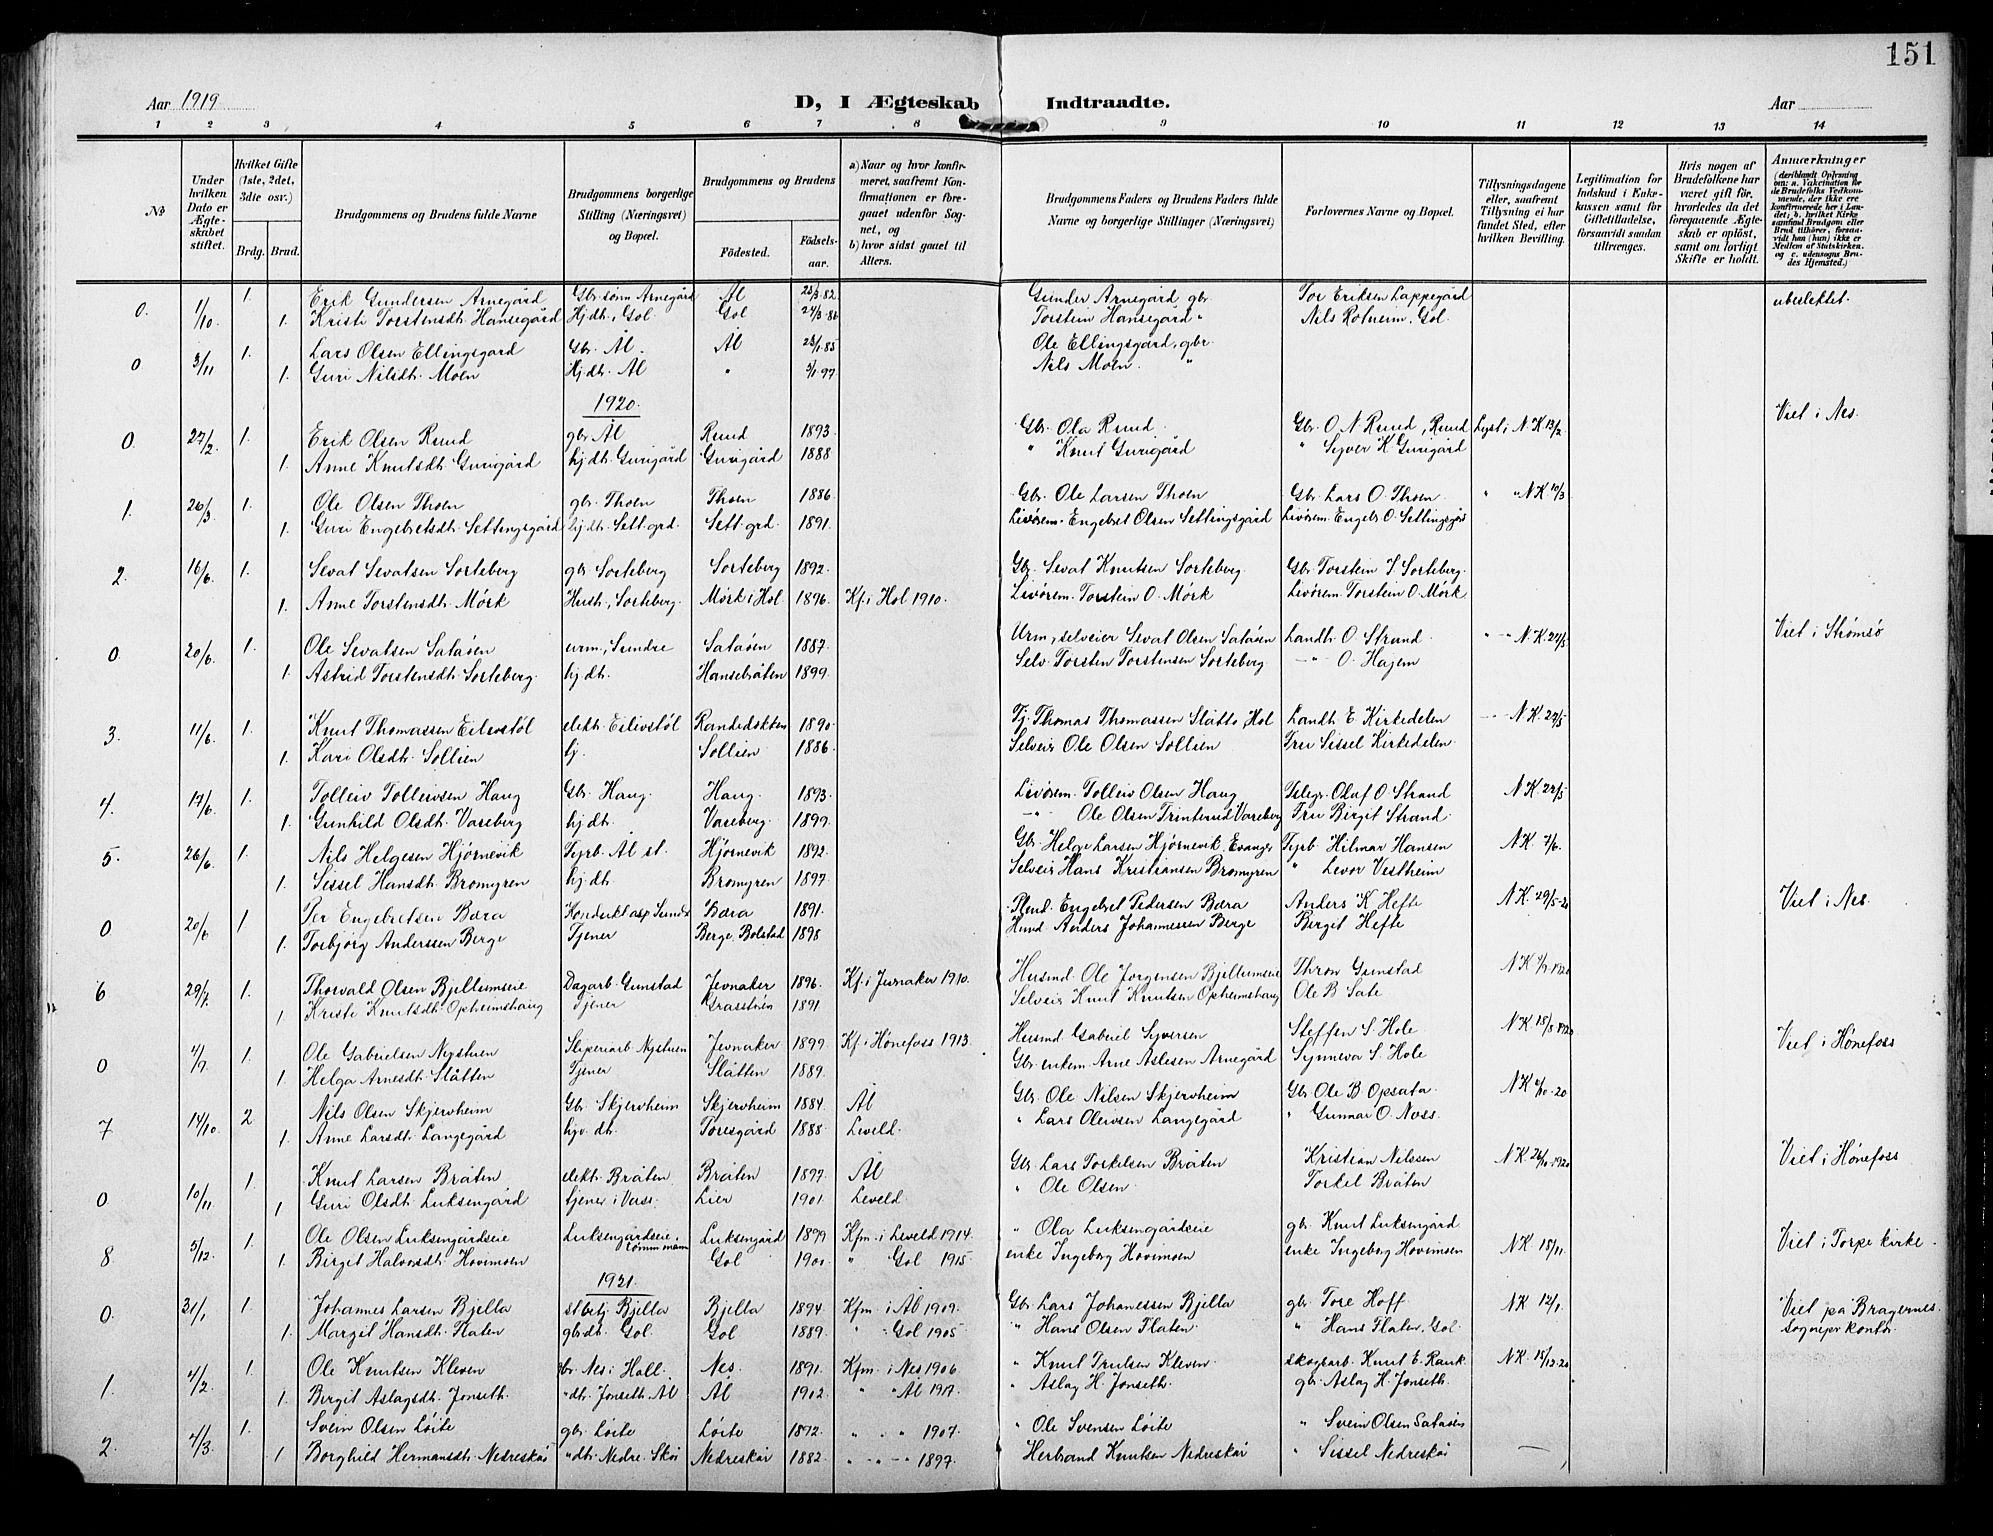 151
Aar 1919
D, I Ægteskab Indtraadte.
Aar
1 2 3 4 5 6 7 8 9 10 11 12 13 14
No
Under hvilken Dato er Ægteskabet stiftet.
Hvilket Gifte (1ste, 2det, 3die osv.)
Brdg. Brud.
Brudgommens og Brudens fulde Navne
Brudgommens borgerlige Stilling (Næringsvei) og Bopæl.
Brudgommens og Brudens
Födested. Födselsaar.
a) Naar og hvor konfirmeret, saafremt Konfirmationen er foregaaet udenfor Sognet, og
b) hvor sidst gaaet til Alters.
Brudgommens Faders og Brudens Faders fulde Navne og borgerlige Stillinger (Næringsvei)
Forlovernes Navne og Bopæl.
Tillysningsdagene eller, saafremt Tillysning ei har fundet Sted, efter hvilken Bevilling.
Legitimation for Indskud i Enkekassen samt for Giftetilladelse, forsaavidt saadan tiltrænges.
Hvis nogen af Brudefolkene har været gift för, hvorledes da det foregaaende Ægteskab er oplöst, samt om lovligt Skifte er holdt.
Anmærkninger (deriblandt Oplysning om: a. Vakcination for de Brudefolks Vedkommende, der ikke ere konfirmerede her i Landet; b. hvilket Kirkesamfund Brudgom eller Brud tilhörer, forsaavidt han (hun) ikke er Medlem af Statskirken, og c. udensogns Brudes Hjemsted.)
0. 1/10 1. Erik Gundersen Arnegård Gbr.sönn Arnegård Ål 25/3 82 Gunder Arnegård gbr. Tor Eriksen Lappegård ubeslektet.
1. Kristi Torstensdt. Hansegård Hj.dt. Gol Gol 24/3 86 Torstein Hansegård " Nils Rotneim, Gol
0 3/11 1. Lars Olsen Ellingsgard Gbr. Ål. Ål 25/1 85 Ole Ellingsgard, gbr.
1. Guri Nilsdt. Moen Hj.dt. Ål " 5/1 97 Nils Moen. "
1920.
0. 27/2 1. Erik Olsen Ruud gbr. Ål Ruud 1893 Gbr. Ola Ruud. Gbr. O N Ruud, Ruud Lyst i N.K 13/2 Viet i Nes.
1. Anne Knutsdt. Gurigård hj.dt. Gurigård Gurigård 1888 " Knut Gurigård " Syver K Gurigård
1. 26/3 1. Ole Olsen Thoen gbr. Thoen Thoen 1886 Gbr. Ole Larsen Thoen Gbr. Lars O. Thoen. " " N K 10/3
1. Guri Engebretsdt. Settingsgård hj.dt. Sett.grd. Sett.grd. 1891. Livörem. Engebret Olsen Settingsgård Livörem. Engebr. O. Settingsgård
2. 16/6 1. Sevat Sevatsen Sorteberg gbr Sorteberg Sorteberg 1892. Gbr. Sevat Knutsen Sorteberg. Gbr. Torstein S. Sorteberg.
1. Anne Torstensdt. Mörk Hust., Sorteberg. Mörk i Hol 1896. Kf. i Hol 1910. Livörem. Torstein O. Mörk Livörem. Torstein O. Mörk
0 20/6 1. Ole Sevatsen Satåsen urm., Sundre Satåsen 1887. Urm., selveier Sevat Olsen Satåsen Landh. O. Strand. " -"- N.K. 27/5 Viet i Strömsö
1. Astrid Torstensdt. Sorteberg. hj.dt. Hansebråten 1899. Selv. Torsten Torstensen Sorteberg. -"- O. Hajem
3. 11/6 1. Knut Thomassen Eilivstöl elekt. Eilivstöl 1890 Tj. Thomas Thomassen Slåtto, Hol Landh. E. Kirkedelen -"- N.K. 27/5
1. Kari Olsdt. Sollien hj. Sollien 1886. Selveier Ole Olsen Sollien Fru Sissel Kirkedelen.
4. 17/6 1. Tolleiv Tolleivsen Haug Gbr. Haug. Haug. 1893. Livörem. Tolleiv Olsen Haug Telegr. Olaf O. Strand N K. 27/5
1. Gunhild Olsdt. Vareberg hj.dt. Vareberg. 1899. -"- Ole Olsen Trinterud Vareberg Fru Birgit Strand.
5. 26/6 1. Nils Helgesen Hjörnevik Jeyrb. Ål st. Hjörnevik 1892. Gbr. Helge Larsen Hjörnevik, Evanger Jeyrb. Hilmar Hansen N K. 7/6.
1. Sissel Hansdt. Bromyren hj.dt. Bromyren 1897. Selveier Hans Kristiansen Bromyren " Levor Vestheim
0 20/6 1 Per Engebretsen Bæra Kondukt.asp. Sundre Bæra 1891. Engebret Pedersen Bæra Anders K Hefte N K. 29/5-20 Viet i Nes.
1. Torbjörg Anderssen Berge Tjener Berge, Bolstad 1898 Husmd. Anders Johannessen Berge Birgit Hefte
6 29/7. 1. Thorvald Olsen Bjellumseie Dagarb. Gunstad Jevnaker 1896. Kf. i Jevnaker 1910. Husmd. Ole Jorgensen Bjellumseie Thron Gunstad
1 Kristi Knutsdt. Opheimshaug Tjener 1891 Selveier Knut Knutsen Opheimshaug Ole B Sate
0 4/9. 1. Ole Gabrielsen Nystuen Sliperiarb. Nystuen Jevnaker 1899. Kf. i Hönefoss 1913. Husmd Gabriel Syversen Steffen S. Hole N K. 15/8 1920 Viet i Hönefoss
1. Helga Arnesdt. Slåtten Tjener Slåtten 1889. Gbr. enkem. Arne Aslesen Arnegård Synneva S. Hole
7 14/10. 2 Nils Olsen Skjervheim Gbr. Skjervheim Skjervheim 1884. Ål Gbr. Ole Nilsen Skjervheim Gbr. Ole B Opsata. N K 6/10-20
1. Anne Larsdt. Langegård hjv. dt. Toresgård 1888. Leveld. " Lars Oleivsen Langegård " Gunnar O. Noss.
0 10/11 1. Knut Larsen Bråten elekt. Bråten Bråten 1897. Ål Gbr. Lars Torkelsen Bråten Kristian Nilssen N K. 26/10-1920 Viet i Hönefoss
1 Guri Olsdt. Luksengård tjener i Vass. Lier 1901. Leveld " Ole Olsen Torkel Bråten
8. 5/12. 1. Ole Olsen Luksengårdseie Luksengårdseie. tömmerm. Luksengård 1899 Kfm. i Leveld 1914. " Ola Luksengårdseie gbr. Knut Luksengård. N K. 15/11 Viet i Torpe kirke.
1. Birgit Halvorsdt. Hovimoen Gol 1900. " Gol 1915. enke Ingeborg Hovimoen enke Ingeborg Hovimoen
1921.
0. 31/1 1. Johannes Larsen Bjella st.betj. Bjella Bjella 1894. Kfm i Ål 1909. Gbr. Lars Johanessen Bjella gbr. Tore Hoff. N K 12/1. Viet på Bragernes sognepr kontor
1. Margit Hansdt. Flaten gbr.dt. Gol. Gol 1889. " " Gol 1905. " Hans Olsen Flaten. " Hans Flaten, Gol.
1. 4/2 1. Ole Knutsen Kleven gbr. Nes i Hall. Nes. 1891. Kfm. i Nes 1906 " Knut Trulsen Kleven. skogsarb. Knut E. Rank. N K. 15/12-20
1. Bergit Aslagsdt. Jonseth. " dt. Jonseth. Ål Ål 1902. " " Ål 1917. " Aslag H. Jonseth. gbr. Aslag H. Jonseth.
2. 4/3. 1. Svein Olsen Löite gbr. Löite Löite 1892. " " " 1907. " Ole Svensen Löite " Svein Olsen Satåsen
1 Borghild Hermansdt. Nedreskår " dt. Nedre. Skår Nedreskår 1882. " " " 1897. Herbrand Knutsen Nedreskår " Sissel Nedreskår —